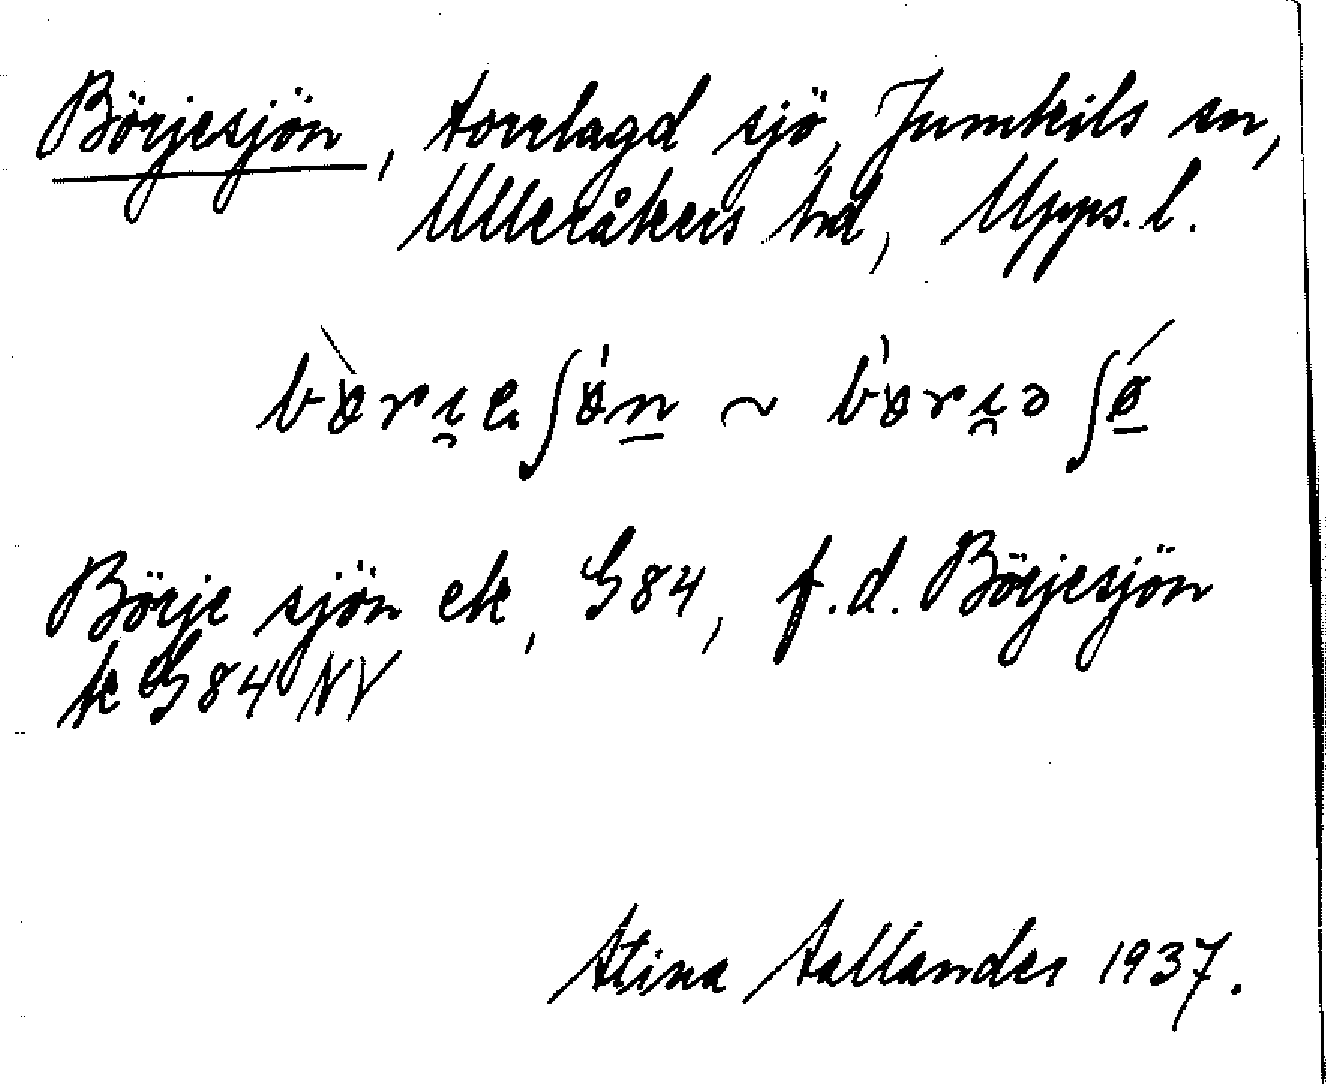 Börjesjön, torrlagd sjö, Jumkils sn,
Ulleråkers hd, Upps. l.
Börje sjön ek, G84, f.d. Börjesjön
k G84 NV
Stina Hallander 1937.